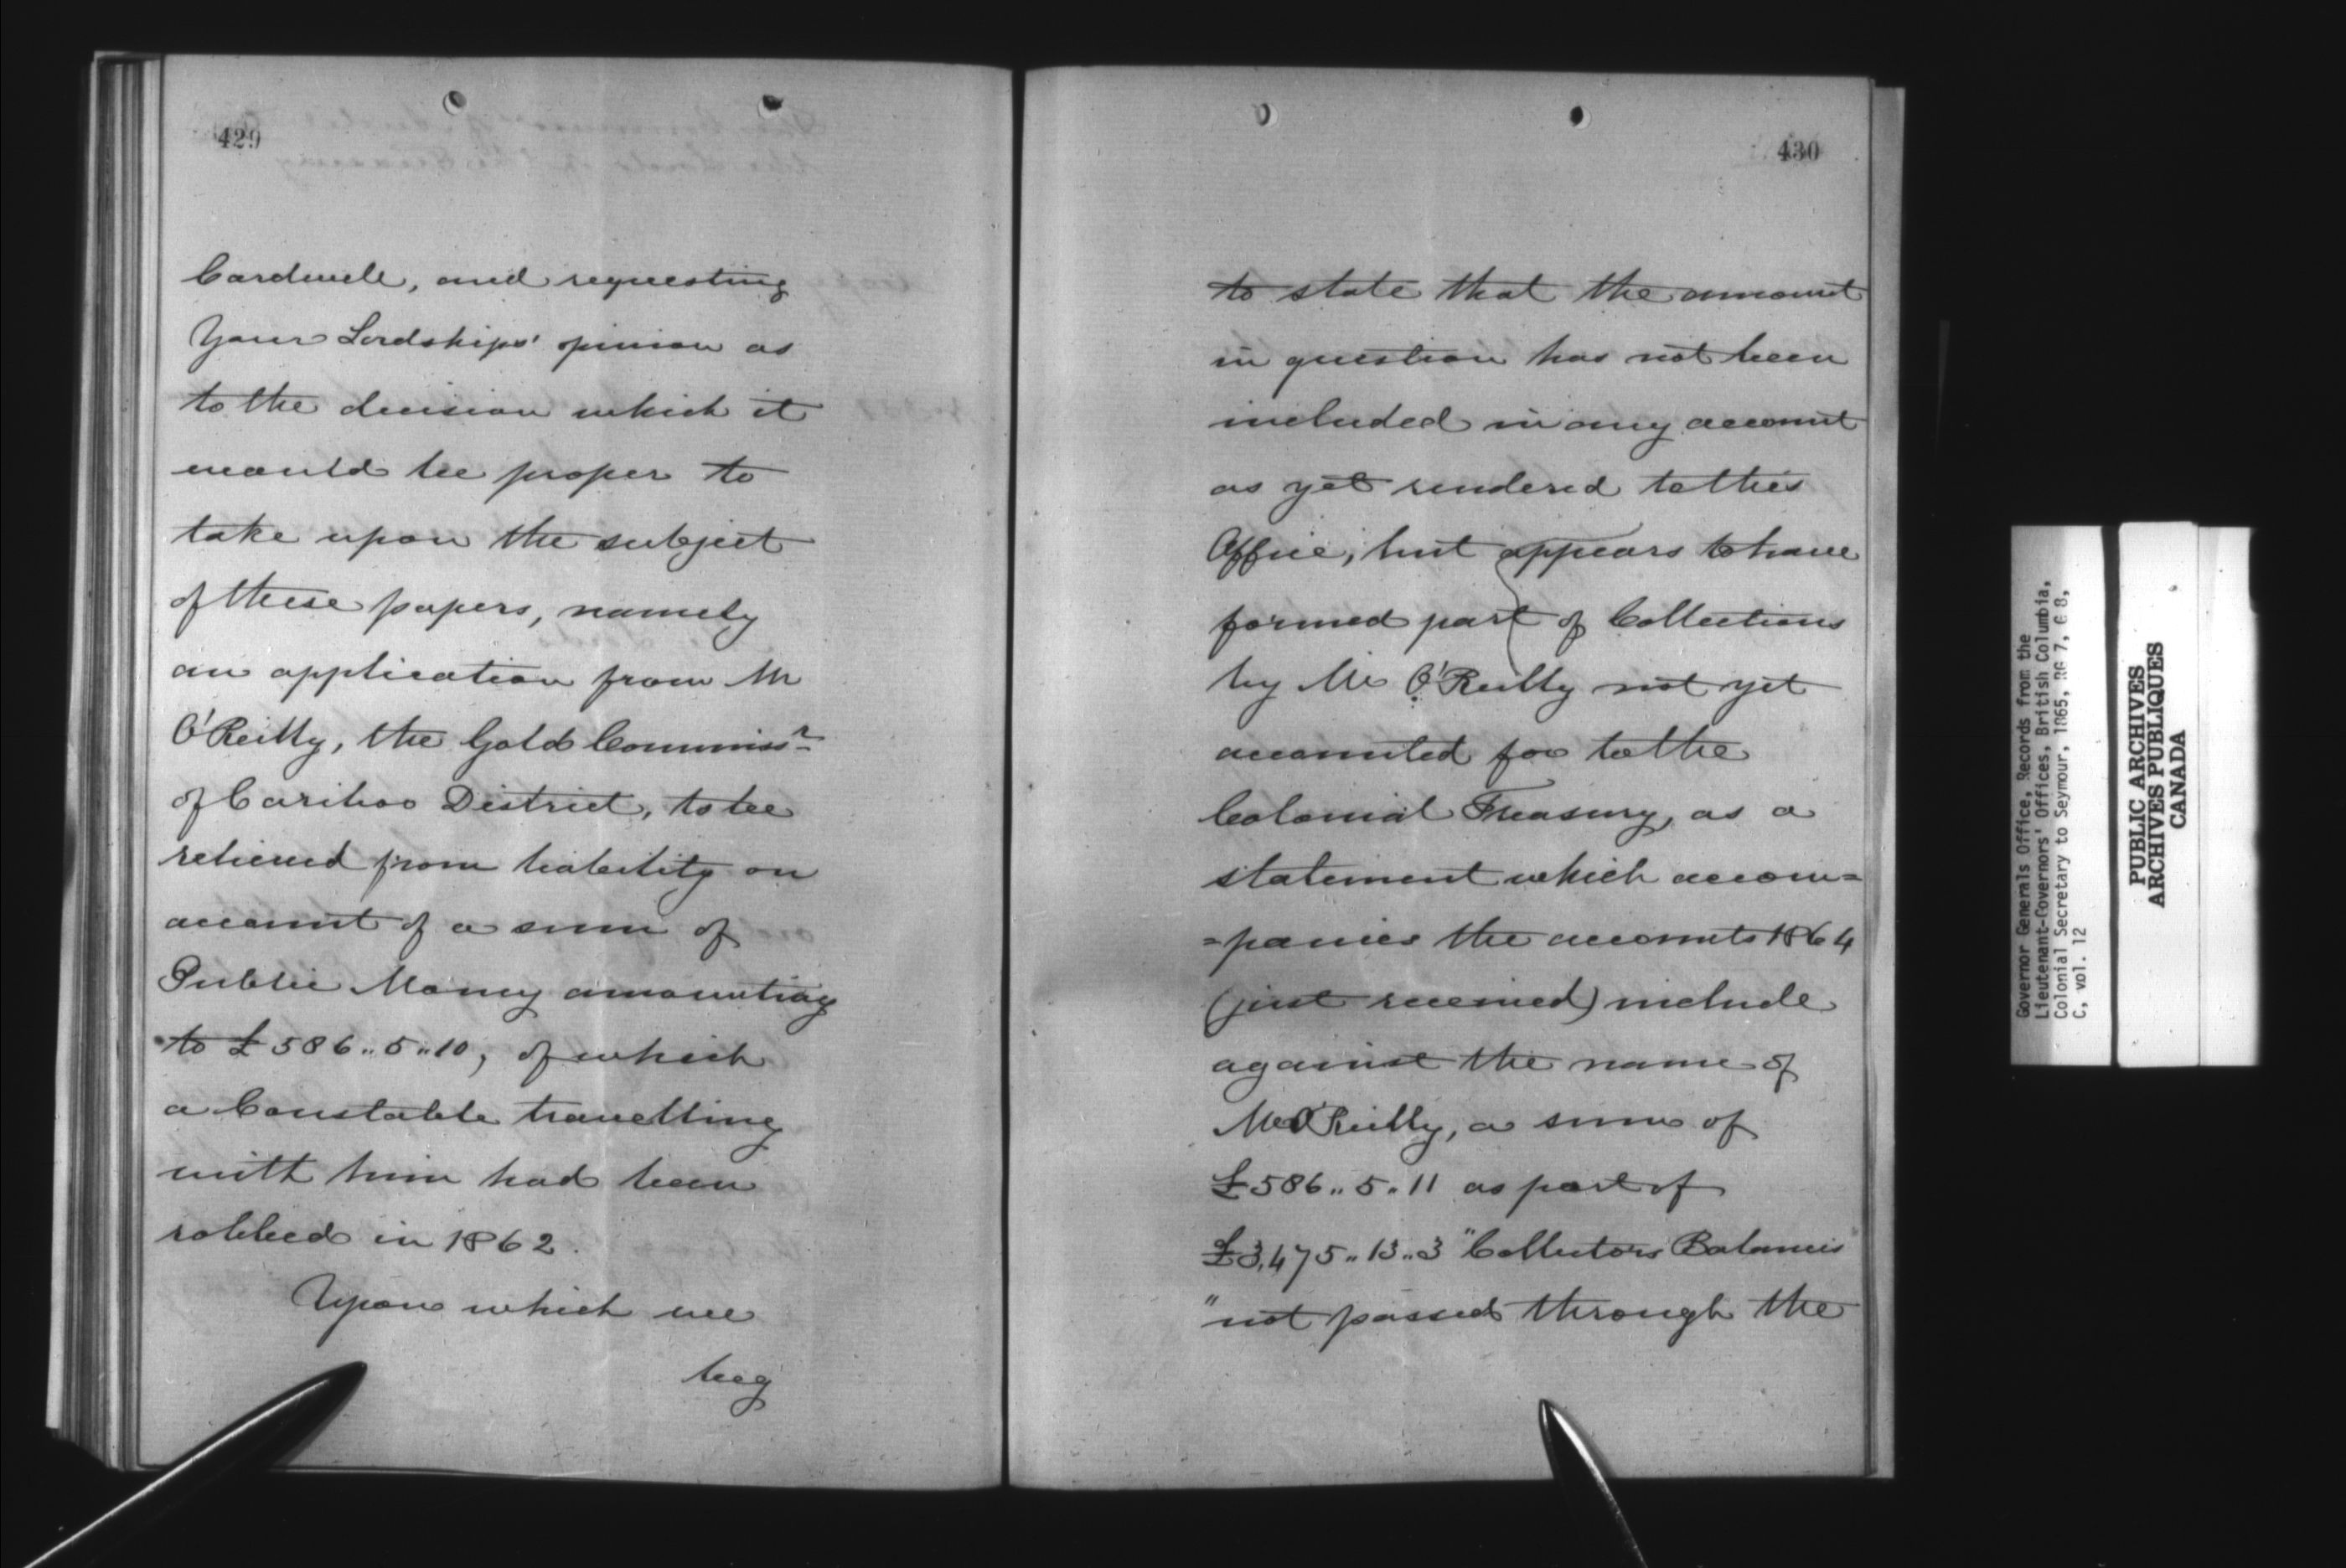 429
Cardwell, and requesting
Your Lordships' opinion as
to the decision which it
would be proper to
take upon the subject
of these papers, namely
an application from Mr
O'Reilly, the Gold Commissr
of Cariboo District, to be
relieved from liability on
account of a sum of
Public Money amounting
to £586..5..10, of which
a Constable travelling
with him had been
robbed in 1862.
Upon which we
beg
430
to state that the amount
in question has not been
included in any account
as yet rendered to this
Office, but appears to have
formed part of Collections
by Mr O'Reilly not yet
accounted for to the
Colonial Treasury, as a
statement which accom=
=panies the accounts 1864
(just received) include
against the name of
Mr O'Reilly, a sum of
£586..5..11 as part of
£3,475..13..3 "Collectors Balances
"not passed through the
Governor Generals Office, Records from the
Lieutenant-Governors' Offices, British Columbia,
Colonial Secretary to Seymour, 1865, RG 7, G 8,
C, vol. 12
PUBLIC ARCHIVES
ARCHIVES PUBLIQUES
CANADA